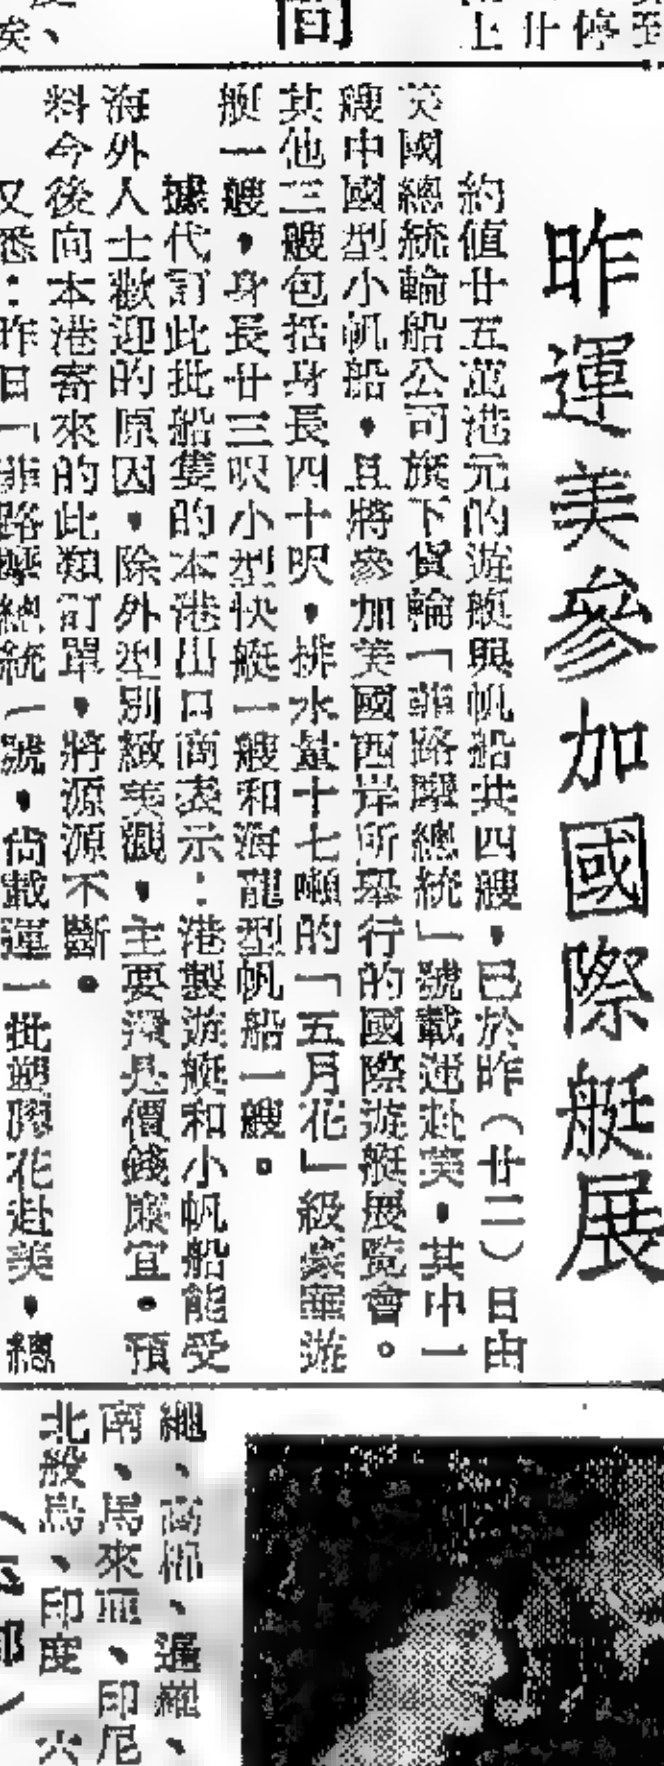 昨運美參加國際艇展
約值廿五萬港元的遊艇與帆船共四艘，已於昨（廿二）日由
美國總統輪船公司旗下貨輪「菲路摩總統」號載運赴美，其中一
艘中國型小帆船，且將參加美國西岸所舉行的國際遊艇展覽會。
其他三艘包括身長四十呎，排水量十七噸的「五月花」級豪華遊
艇一艘，身長廿三呎小型快艇一艘和海龍型帆船一艘。
據代訂此批船隻的本港出口商表示：港製遊艇和小帆船能受
海外人士歡迎的原因，除外型別緻美觀，主要還是價錢廉宜。預
料今後向本港寄來的此類訂單，將源源不斷。
又悉：昨日「菲路摩總統」號，尚載運一批塑膠花赴美，總
繩、高棉、暹羅、
南、馬來亞、印尼
北般鳥、印度